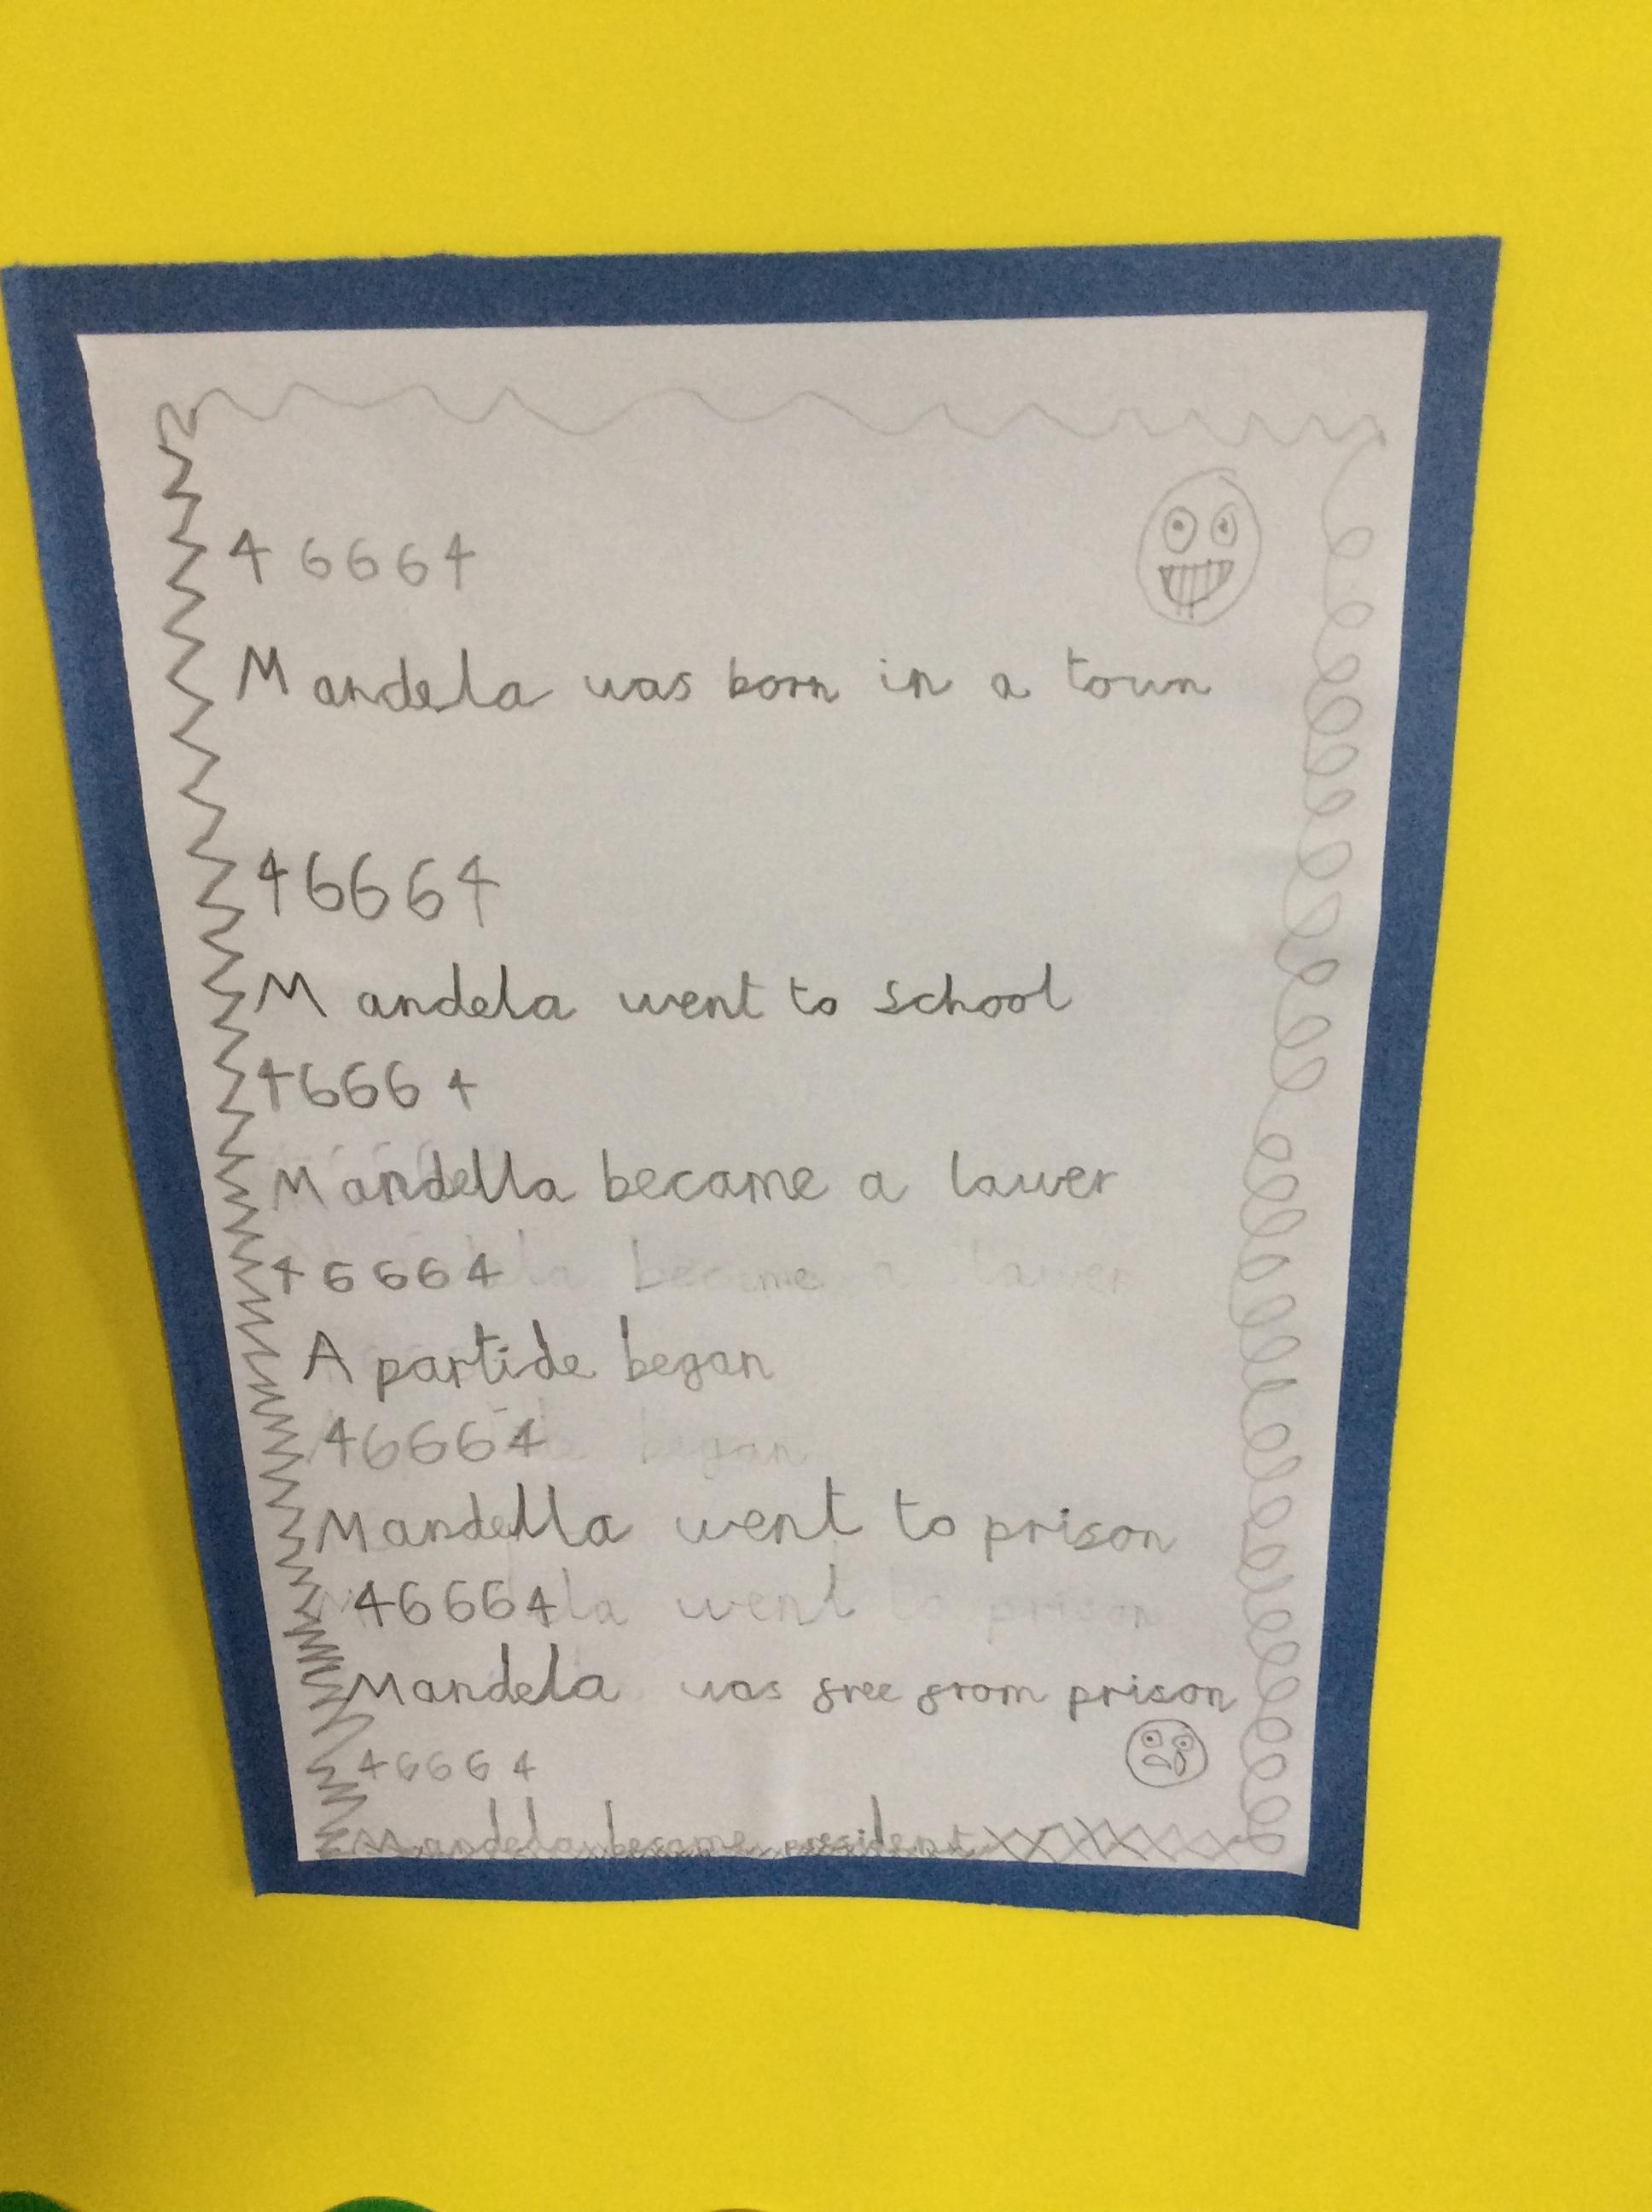 46664
Mandela was born in a town
46664
Mandela went to school
46664
Mandella became a lawer
46664
Apartide began
46664
Mandella went to prison
46664
Mandela was free from prison
46664
Mandela became president